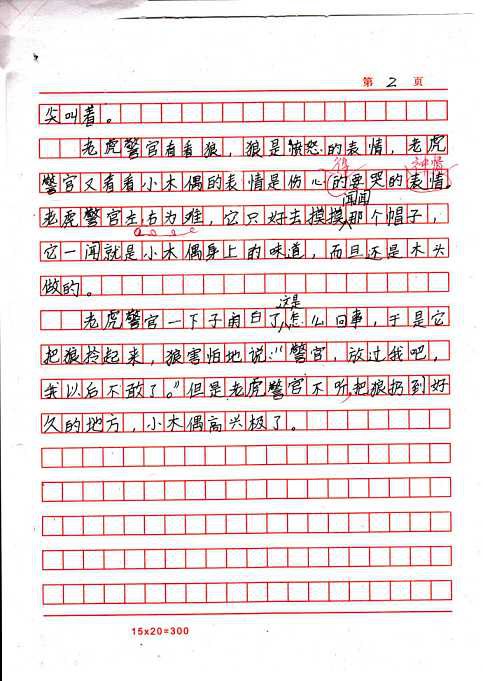 第 2 页
尖叫着。
老虎警官看看狼，狼是愤怒的表情，老虎
得 神情
警官又看看小木偶的表情是伤心的要哭的表情，
闻闻
老虎警官左右为难，它只好去摸摸那个帽子，
它一闻就是小木偶身上的味道，而且还是木头
做的。
这是
老虎警官一下子明白了怎么回事，于是它
把狼拎起来，狼害怕地说：“警官，放过我吧，
我以后不敢了。”但是老虎警官不听，把狼扔到好
久的地方，小木偶高兴极了。
15x20=300